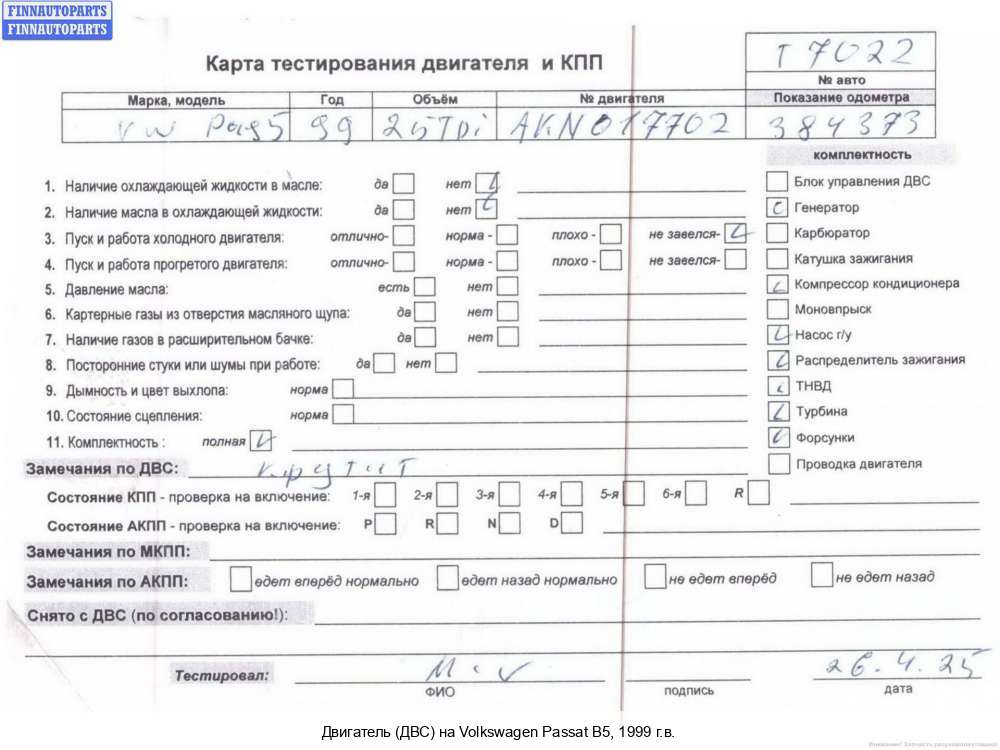 FINNAUTOPARTS
FINNAUTOPARTS
Карта тестирования двигателя и КПП
T 7022
№ авто
Марка, модель Год Объём № двигателя Показание одометра
VW Pas5 99 25TDi AKN017702 384373
комплектность
1. Наличие охлаждающей жидкости в масле: да нет Блок управления ДВС
2. Наличие масла в охлаждающей жидкости: да нет Генератор
3. Пуск и работа холодного двигателя: отлично- норма - плохо - не завелся- Карбюратор
4. Пуск и работа прогретого двигателя: отлично- норма - плохо - не завелся- Катушка зажигания
5. Давление масла: есть нет Компрессор кондиционера
6. Картерные газы из отверстия масляного щупа: да нет Моновпрыск
7. Наличие газов в расширительном бачке: да нет Насос г/у
8. Посторонние стуки или шумы при работе: да нет Распределитель зажигания
9. Дымность и цвет выхлопа: норма ТНВД
10. Состояние сцепления: норма Турбина
11. Комплектность : полная Форсунки
Замечания по ДВС: крутит Проводка двигателя
Состояние КПП - проверка на включение: 1-я 2-я 3-я 4-я 5-я 6-я R
Состояние АКПП - проверка на включение: P R N D
Замечания по МКПП:
Замечания по АКПП: едет вперёд нормально едет назад нормально не едет вперёд не едет назад
Снято с ДВС (по согласованию!):
Тестировал: 26.4.25
ФИО подпись дата
Двигатель (ДВС) на Volkswagen Passat B5, 1999 г.в.